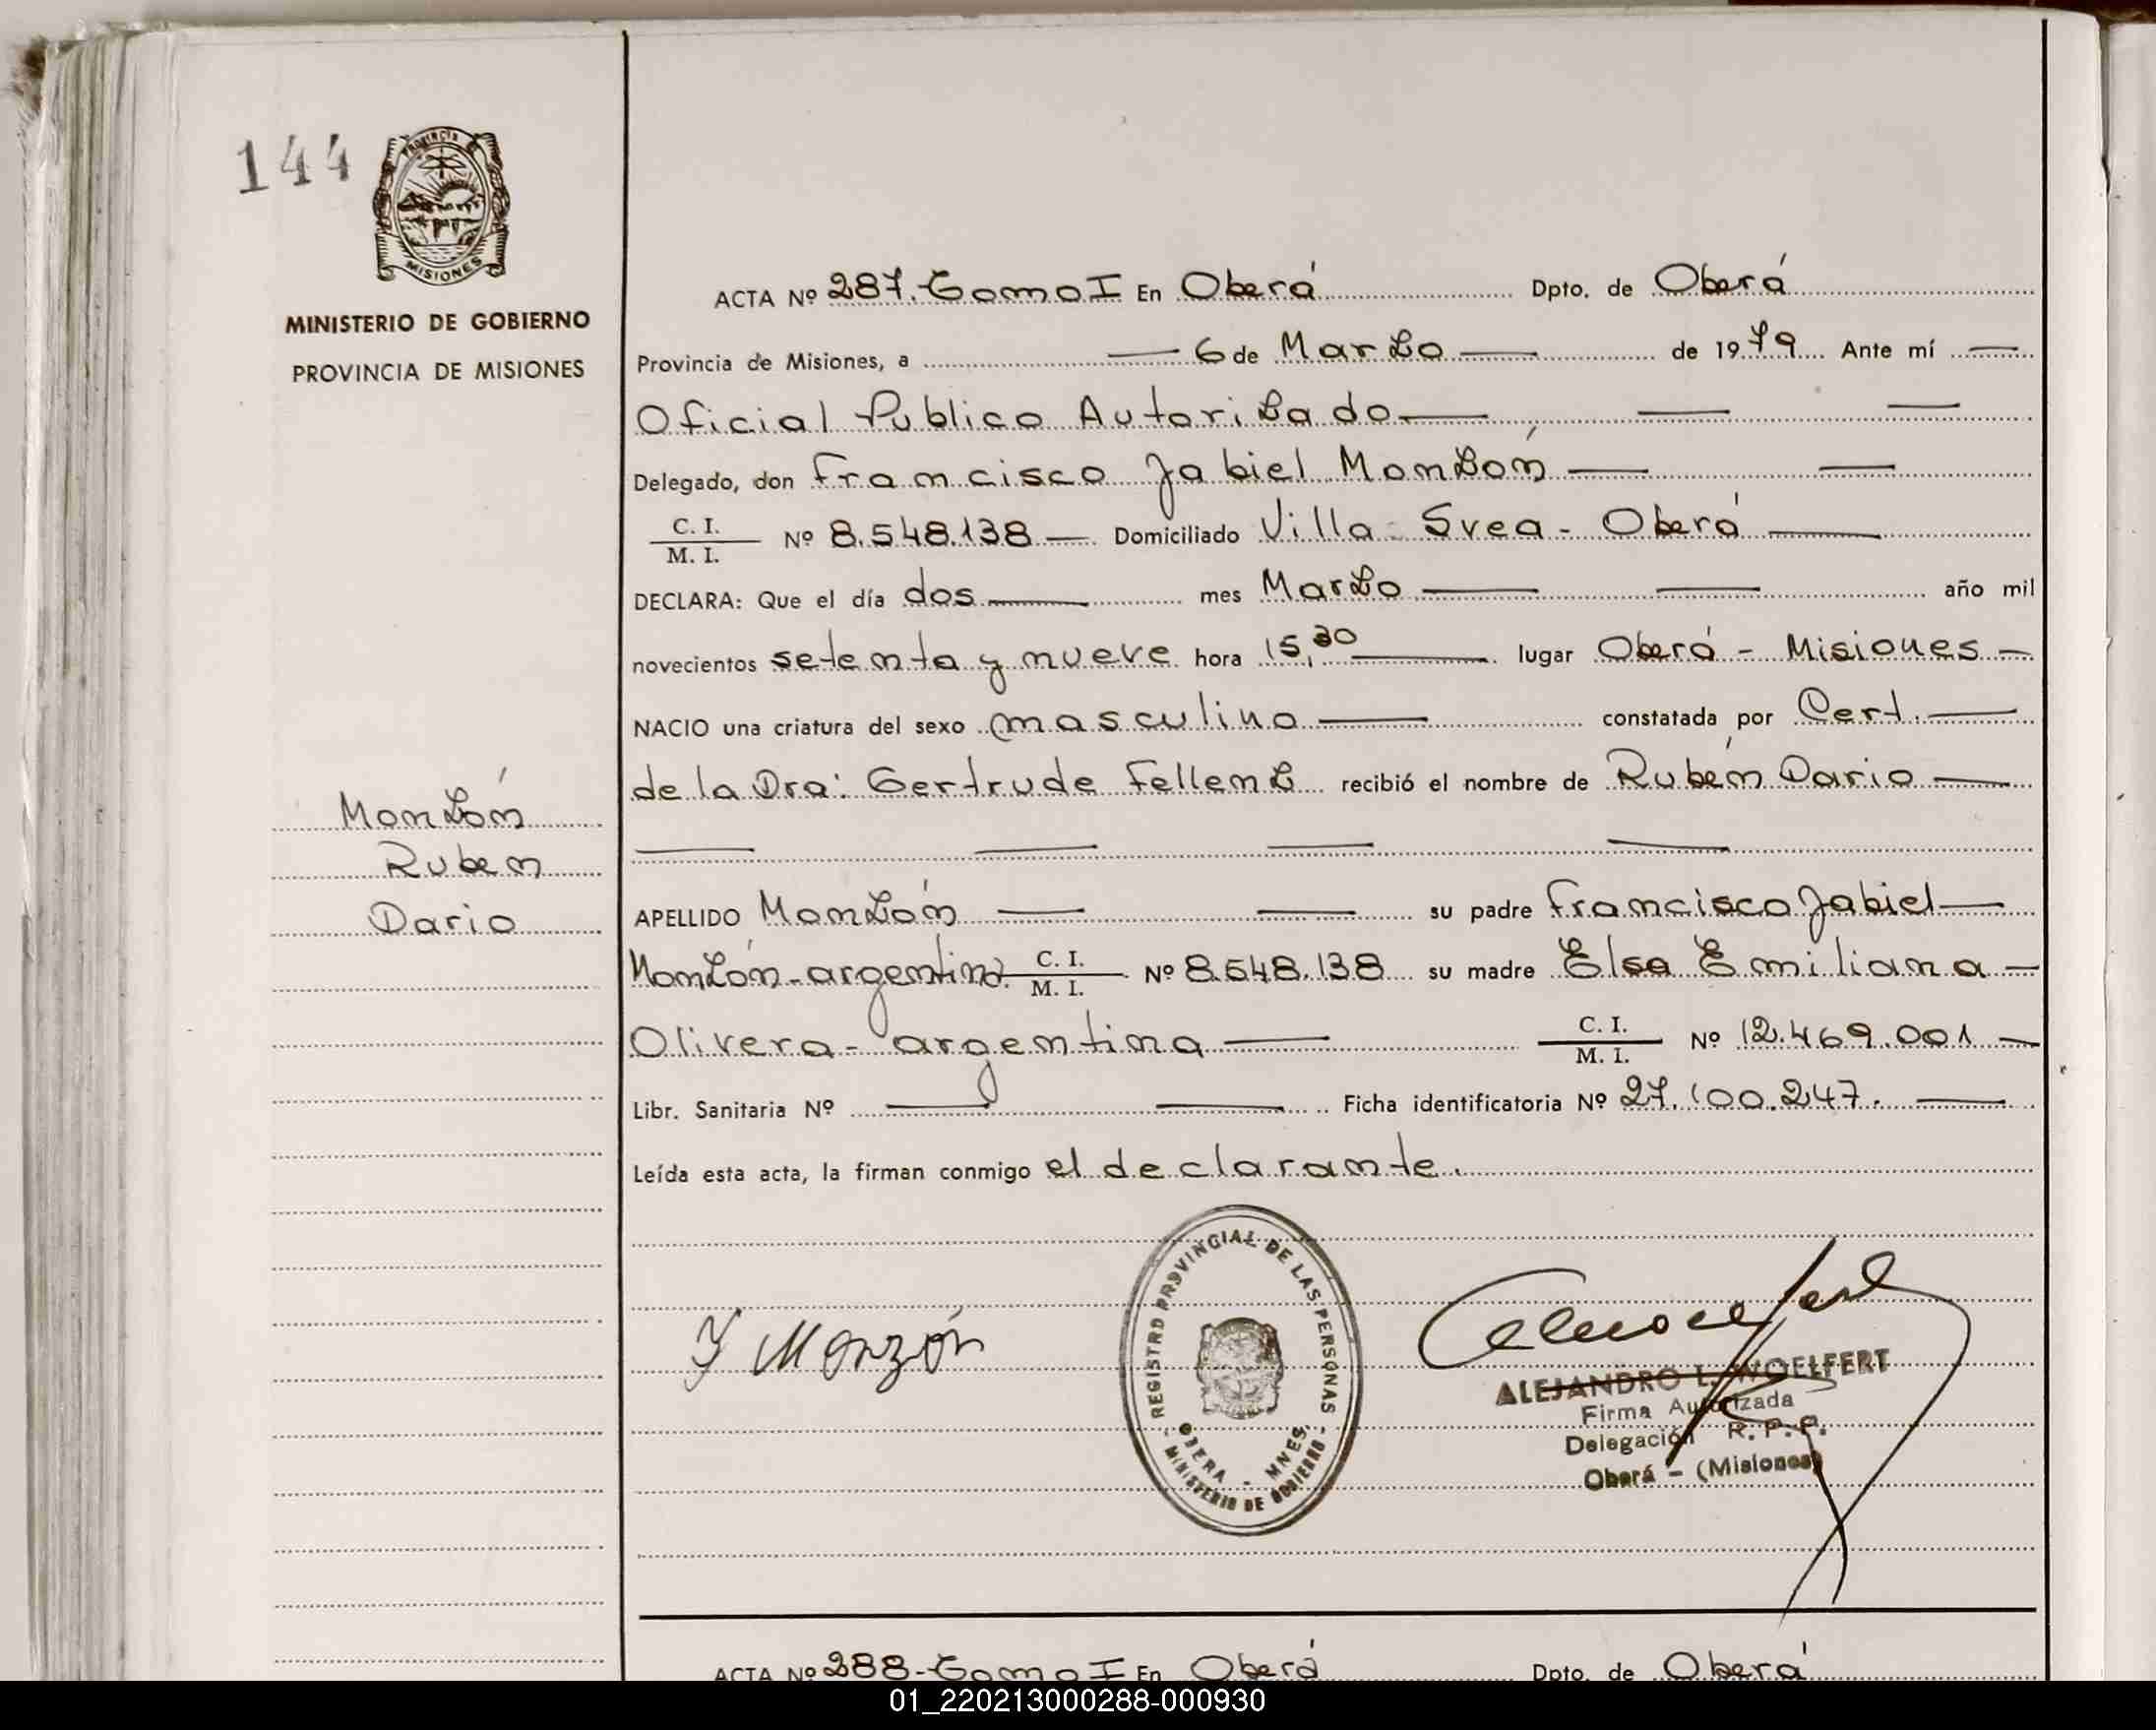 144
PROVINCIA
MISIONES
MINISTERIO DE GOBIERNO
PROVINCIA DE MISIONES
ACTA Nº 287. Tomo I En Oberá Dpto. de Oberá
Provincia de Misiones, a 6 de Marzo de 1979 Ante mí
Oficial Publico Autorizado
Delegado, don Francisco Jabiel Monzón
C. I.
M. I. Nº 8.548.138 Domiciliado Villa - Svea - Oberá
DECLARA: Que el día dos mes Marzo año mil
novecientos setenta y nueve hora 15,30 lugar Oberá - Misiones
NACIO una criatura del sexo masculino constatada por Cert.
de la Dra: Gertrude Fellenz recibió el nombre de Rubén Dario
Monzón
Ruben
Dario
APELLIDO Monzón su padre Francisco Jabiel
Monzón - argentino. C. I. M. I. Nº 8.548.138 su madre Elsa Emiliana
Olivera - argentina C. I. M. I. Nº 12.469.001
Libr. Sanitaria Nº Ficha identificatoria Nº 27.100.247.
Leída esta acta, la firman conmigo el declarante.
REGISTRO PROVINCIAL DE LAS PERSONAS
OBERA - MNES.
- MINISTERIO DE GOBIERNO -
Monzón
ALEJANDRO L. WOELFERT
Firma Autorizada
Delegación R. P. P.
Oberá - (Misiones)
ACTA Nº 288 - Tomo I En Oberá Dpto. de Oberá
01_220213000288-000930